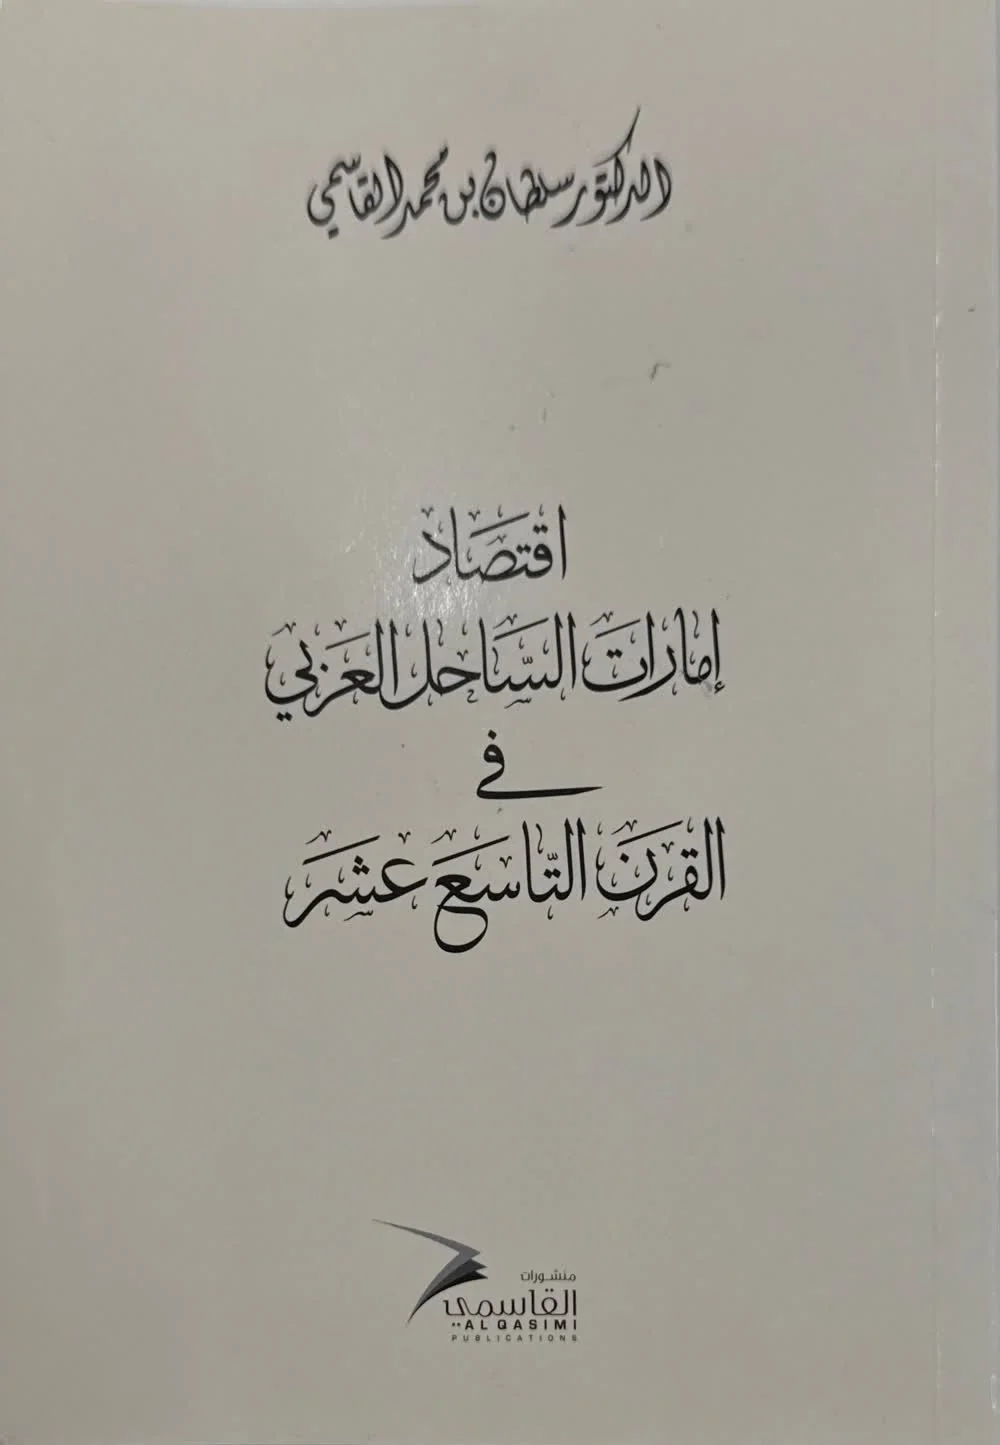 الدكتور سلطان بن محمد القاسمي
اقتصاد
إمارات السّاحل العربي
في
القرن التّاسع عشر
منشورات
القاسمي
AL QASIMI
PUBLICATIONS